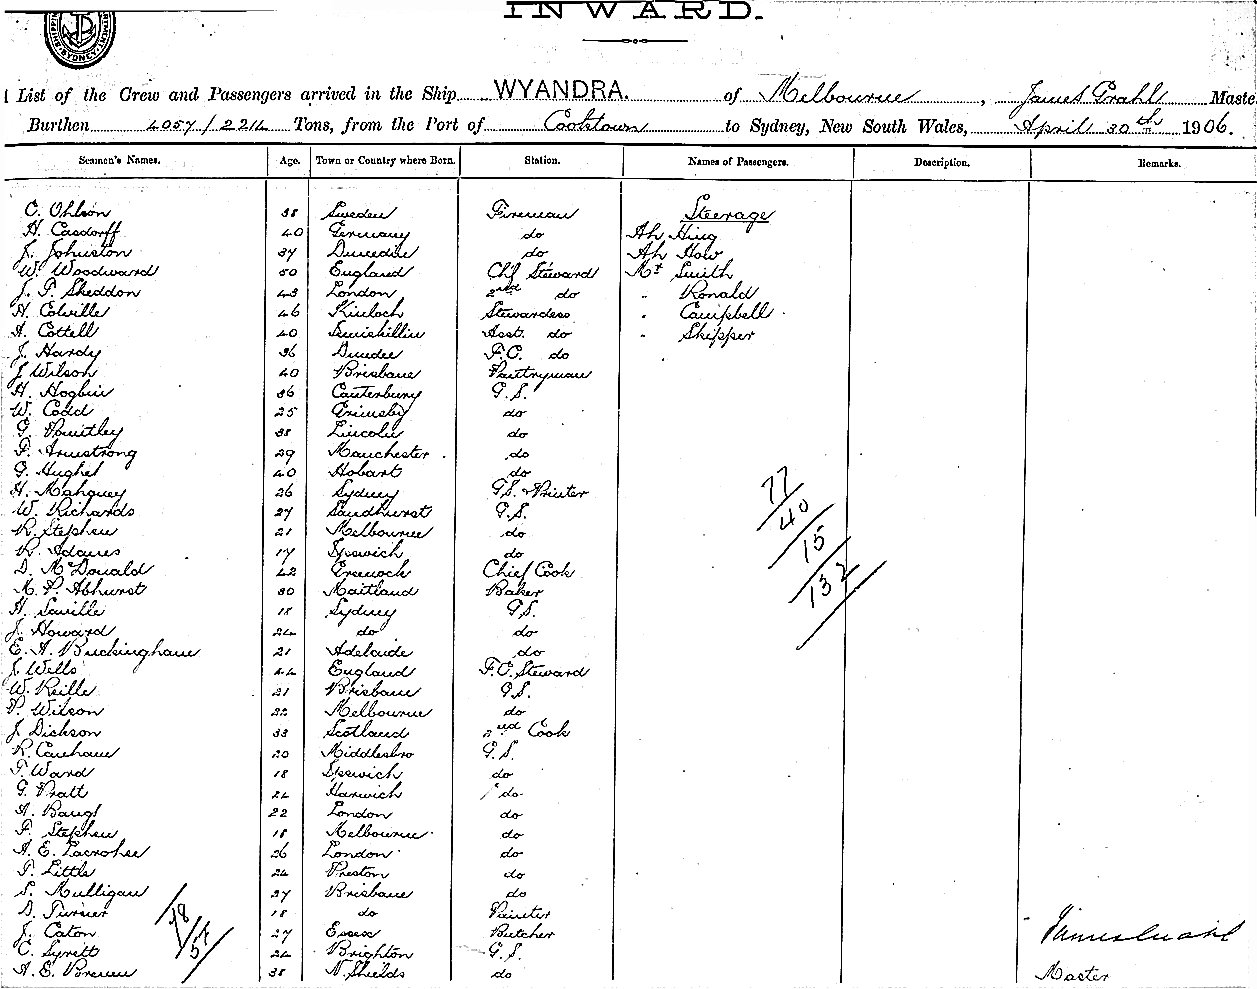 INWARD.
SYDNEY
List of the Crew and Passengers arrived in the Ship WYANDRA. of Melbourne, James Grahl Maste
Burthen 4057/2214 Tons, from the Port of Cooktown to Sydney, New South Wales, April 30th 1906.
Seamen's Names. Age. Town or Country where Born. Station. Names of Passengers. Description. Remarks.
C. Ohlson 38 Sweden Fireman Steerage
H. Casdorff 40 Germany do Ah Hing
J. Johnston 37 Dunedin do Ah How
W. Woodward 50 England Chf Steward Mr Smith
J. P. Sheddon 43 London 2nd do " Ronald
H. Colville 46 Kinloch Stewardess " Campbell
A. Cottell 40 Asst. do " Skipper
J. Hardy 36 Dundee F.C. do
J Wilson 40 Brisbane Pantryman
H. Hogbin 36 Canterbury G.S.
W. Codd 25 Grimsby do
G. Pountley 38 Lincoln do
F. Armstrong 29 Manchester do
G. Hughes 40 Hobart do
H. Mahoney 26 Sydney G.S. Printer
W. Richards 27 Sandhurst G.S.
R. Stephen 21 Melbourne do
R. Adams 17 Ipswich do
D. McDonald 42 Greenock Chief Cook
M. P. Abhurst 30 Maitland Baker
H. Saville 18 Sydney G.S.
J. Howard 24 do do
E. A. Buckingham 21 Adelaide do
J. Wells 44 England F.C. Steward
W. Reille 21 Brisbane G.S.
P. Wilson 22 Melbourne do
J. Dickson 33 Scotland 2nd Cook
R. Canham 20 Middlesbro G.S.
T. Ward 18 Ipswich do
G. Pratt 24 Harwich do
A. Baugh 22 London do
F. Stephen 18 Melbourne do
A. E. 26 London do
T. Little 24 Preston do
S. Mulligan 27 Brisbane do
D. Turner 18 do Painter
J. Caton 27 Essex Butcher
C. Syrett 24 Brighton G.S.
A. E. Brown 38 N. Shields do
77
40
15
132
James Grahl
Master